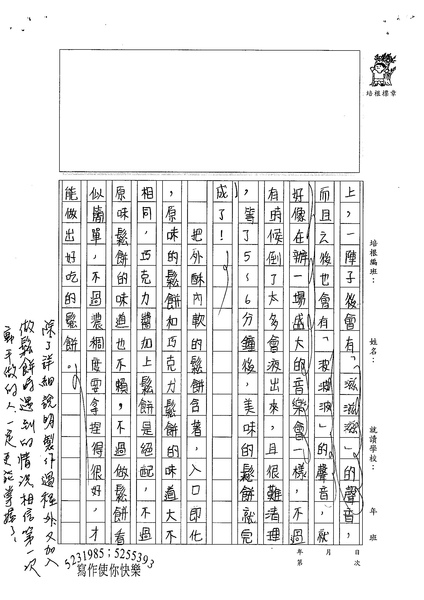 培根標章
培根編班：
姓名：
就讀學校：
年 班
年 月 日
第 次
上，一陣子後會有「滋滋滋」的聲音，
而且之後也會有「波波波」的聲音，就
好像在辦一場盛大的音樂會一樣，不過
有時候倒了太多會液出來，且很難清理
，等了5～6分鐘後，美味的鬆餅就完
成了！
把外酥內軟的鬆餅含著，入口即化
，原味的鬆餅和巧克力鬆餅的味道大不
相同，巧克力醬加上鬆餅是絕配，不過
原味鬆餅的味道也不賴，不過做鬆餅看
似簡單，不過濃稠度要拿捏得很好，才
能做出好吃的鬆餅。
除了詳細說明製作過程外又加入
做鬆餅時遇到的情況相信第一次
動手做的人一定更能掌握了。
5231985；5255393
寫作使你快樂